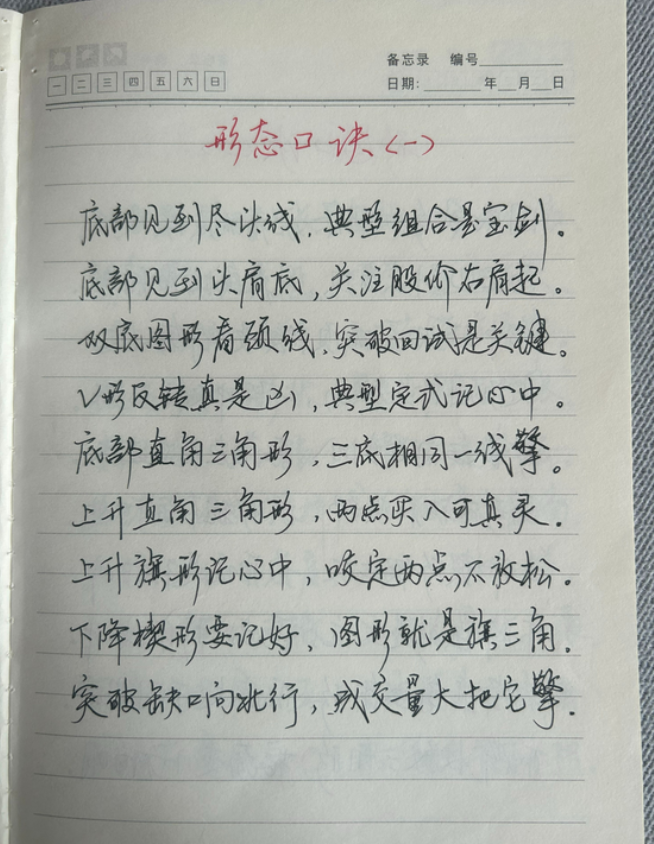 一 二 三 四 五 六 日
备忘录 编号
日期: 年 月 日
形态口诀(一)
底部见到尽头线，典型组合是宝剑。
底部见到头肩底，关注股价右肩起。
双底图形看颈线，突破回试是关键。
V形反转真是凶，典型定式记心中。
底部直角三角形，三底相同一线擎。
上升直角三角形，两点买入可真灵。
上升旗形记心中，咬定两点不放松。
下降楔形要记好，图形就是旗三角。
突破缺口向北行，成交量大把它擎。